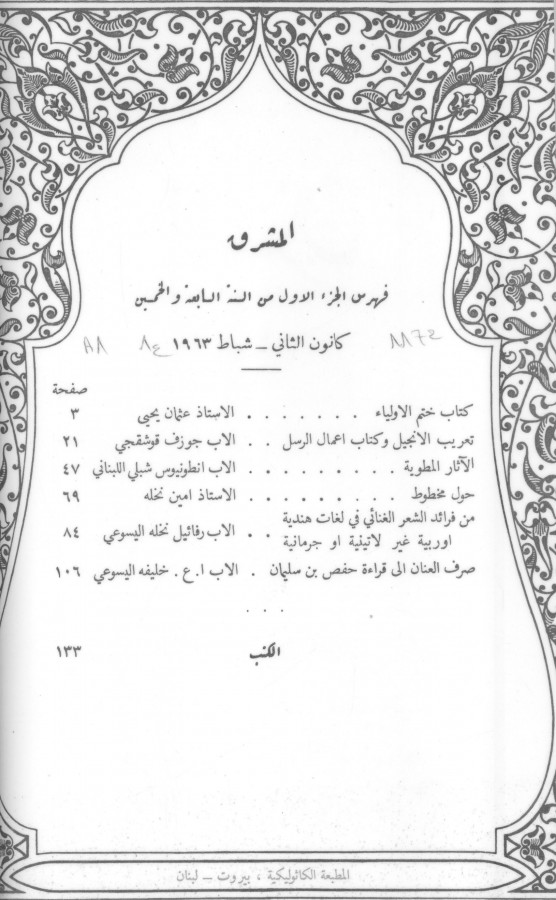 المشرق
فهرس الجزء الاول من السنة السابعة والخمسين
كانون الثاني – شباط ١٩٦٣
صفحة
كتاب ختم الاولياء . . . . . . . الاستاذ عثمان يحيى ٣
تعريب الانجيل وكتاب اعمال الرسل . . الاب جوزف قوشقجي ٢١
الآثار المطوية . . . . . . . . . الاب انطونيوس شبلي اللبناني ٤٧
حول مخطوط . . . . . . . . . الاستاذ امين نخله ٦٩
من فرائد الشعر الغنائي في لغات هندية
اوربية غير لاتينية او جرمانية . . الاب رفائيل نخله اليسوعي ٨٤
صرف العنان الى قراءة حفص بن سليمان . الاب ا. ع. خليفه اليسوعي ١٠٦
. . .
الكتب ١٣٣
المطبعة الكاثوليكية ، بيروت – لبنان